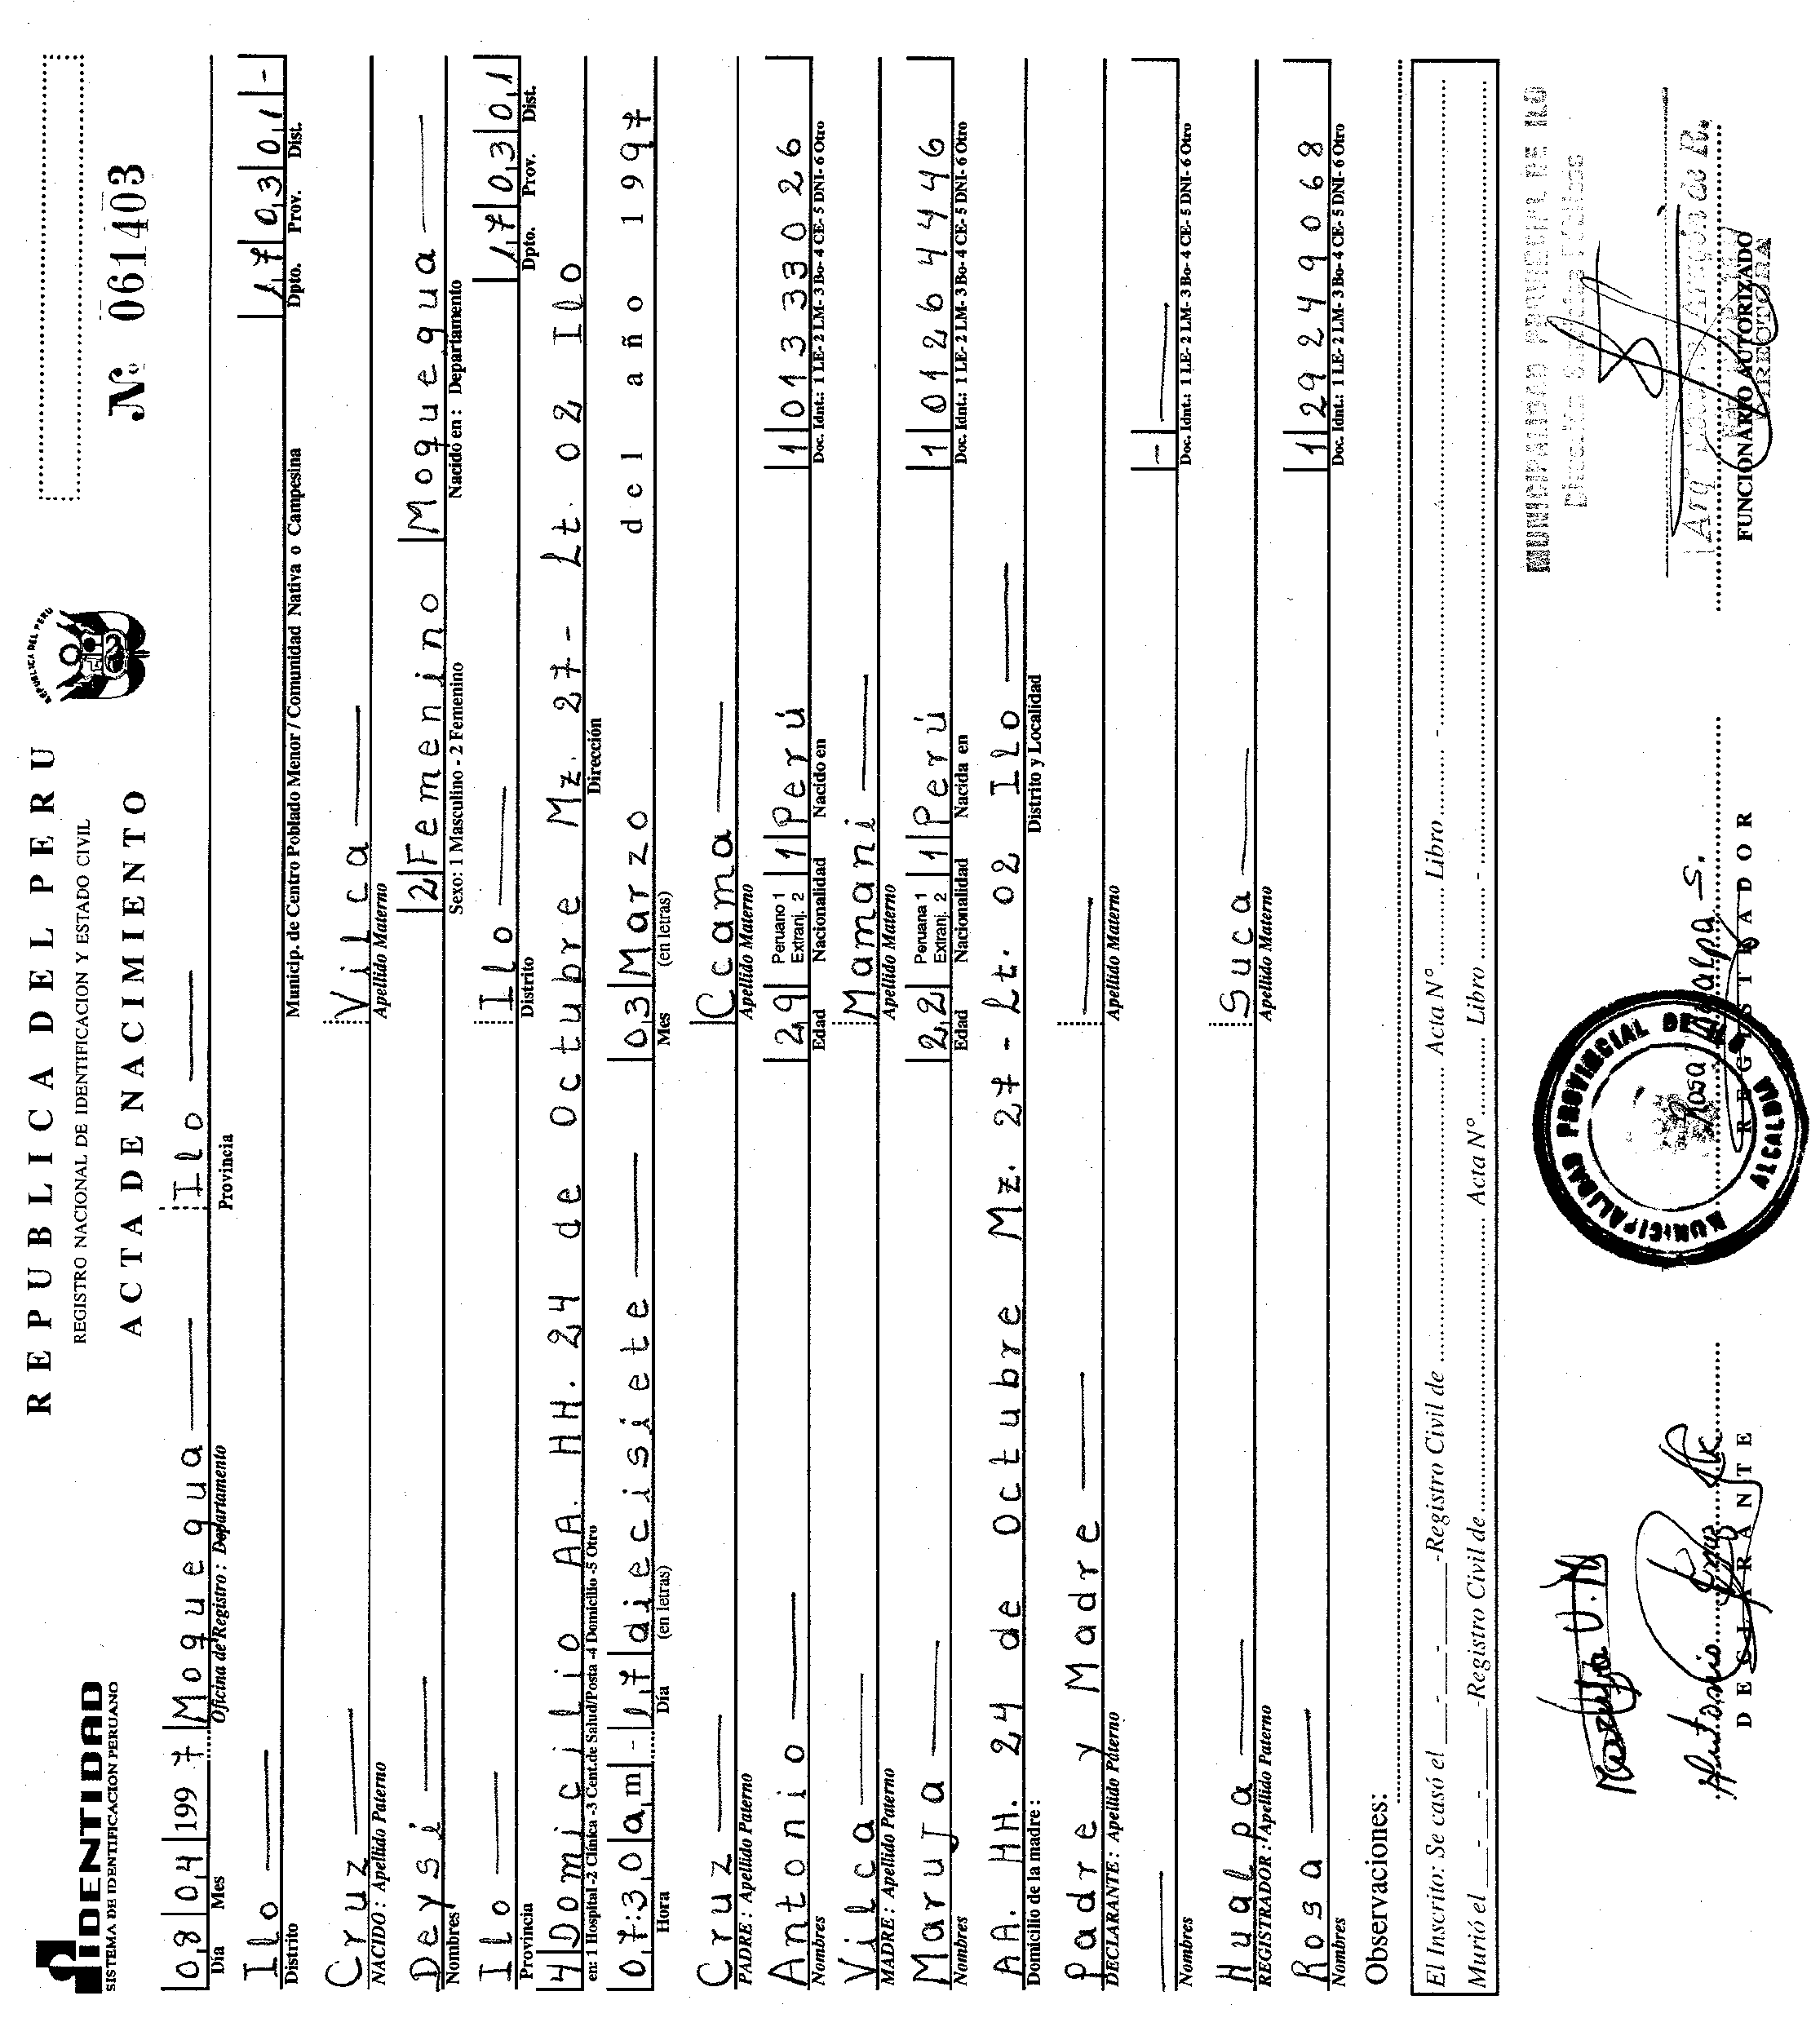 REPUBLICA DEL PERU
REPUBLICA DEL PERU
IDENTIDAD
SISTEMA DE IDENTIFICACION PERUANO
REGISTRO NACIONAL DE IDENTIFICACION Y ESTADO CIVIL
ACTA DE NACIMIENTO
Nº 061403
08 04 1997 Moquegua Ilo
Día Mes Oficina de Registro: Departamento Provincia
Ilo 17 03 01 -
Distrito Municip. de Centro Poblado Menor / Comunidad Nativa o Campesina Dpto. Prov. Dist.
Cruz Vilca
NACIDO: Apellido Paterno Apellido Materno
Deysi 2 Femenino Moquegua
Nombres Sexo: 1 Masculino - 2 Femenino Nacido en: Departamento
Ilo Ilo 17 03 01
Provincia Distrito Dpto. Prov. Dist.
4 Domicilio AA. HH. 24 de Octubre Mz. 27- Lt. 02 Ilo
en: 1 Hospital -2 Clínica -3 Cent.de Salud/Posta -4 Domicilio -5 Otro Dirección
07:30 am - 17 diecisiete 03 Marzo del año 1997
Hora Día (en letras) Mes (en letras)
Cruz Ccama
PADRE: Apellido Paterno Apellido Materno
Antonio 29 Peruano 1 Extranj. 2 1 Perú 1 01333026
Nombres Edad Nacionalidad Nacido en Doc. Idnt.: 1 LE- 2 LM- 3 Bo- 4 CE- 5 DNI- 6 Otro
Vilca Mamani
MADRE: Apellido Paterno Apellido Materno
Maruja 22 Peruana 1 Extranj. 2 1 Perú 1 01264446
Nombres Edad Nacionalidad Nacida en Doc. Idnt.: 1 LE- 2 LM- 3 Bo- 4 CE- 5 DNI- 6 Otro
AA. HH. 24 de Octubre Mz. 27- Lt. 02 Ilo
Domicilio de la madre: Distrito y Localidad
Padre y Madre
DECLARANTE: Apellido Paterno Apellido Materno
-
Nombres Doc. Idnt.: 1 LE- 2 LM- 3 Bo- 4 CE- 5 DNI- 6 Otro
Hualpa Suca
REGISTRADOR: Apellido Paterno Apellido Materno
Rosa 1 29249068
Nombres Doc. Idnt.: 1 LE- 2 LM- 3 Bo- 4 CE- 5 DNI- 6 Otro
Observaciones:
El Inscrito: Se casó el - - -Registro Civil de Acta N° Libro -
Murió el - - -Registro Civil de Acta N° Libro -
MUNICIPALIDAD PROVINCIAL DE ILO
Maruja V.M
Antonio Cruz
DECLARANTE
MUNICIPALIDAD PROVINCIAL DE ILO
ALCALDIA
Rosa Hualpa S.
REGISTRADOR
FUNCIONARIO AUTORIZADO
DIRECTORA